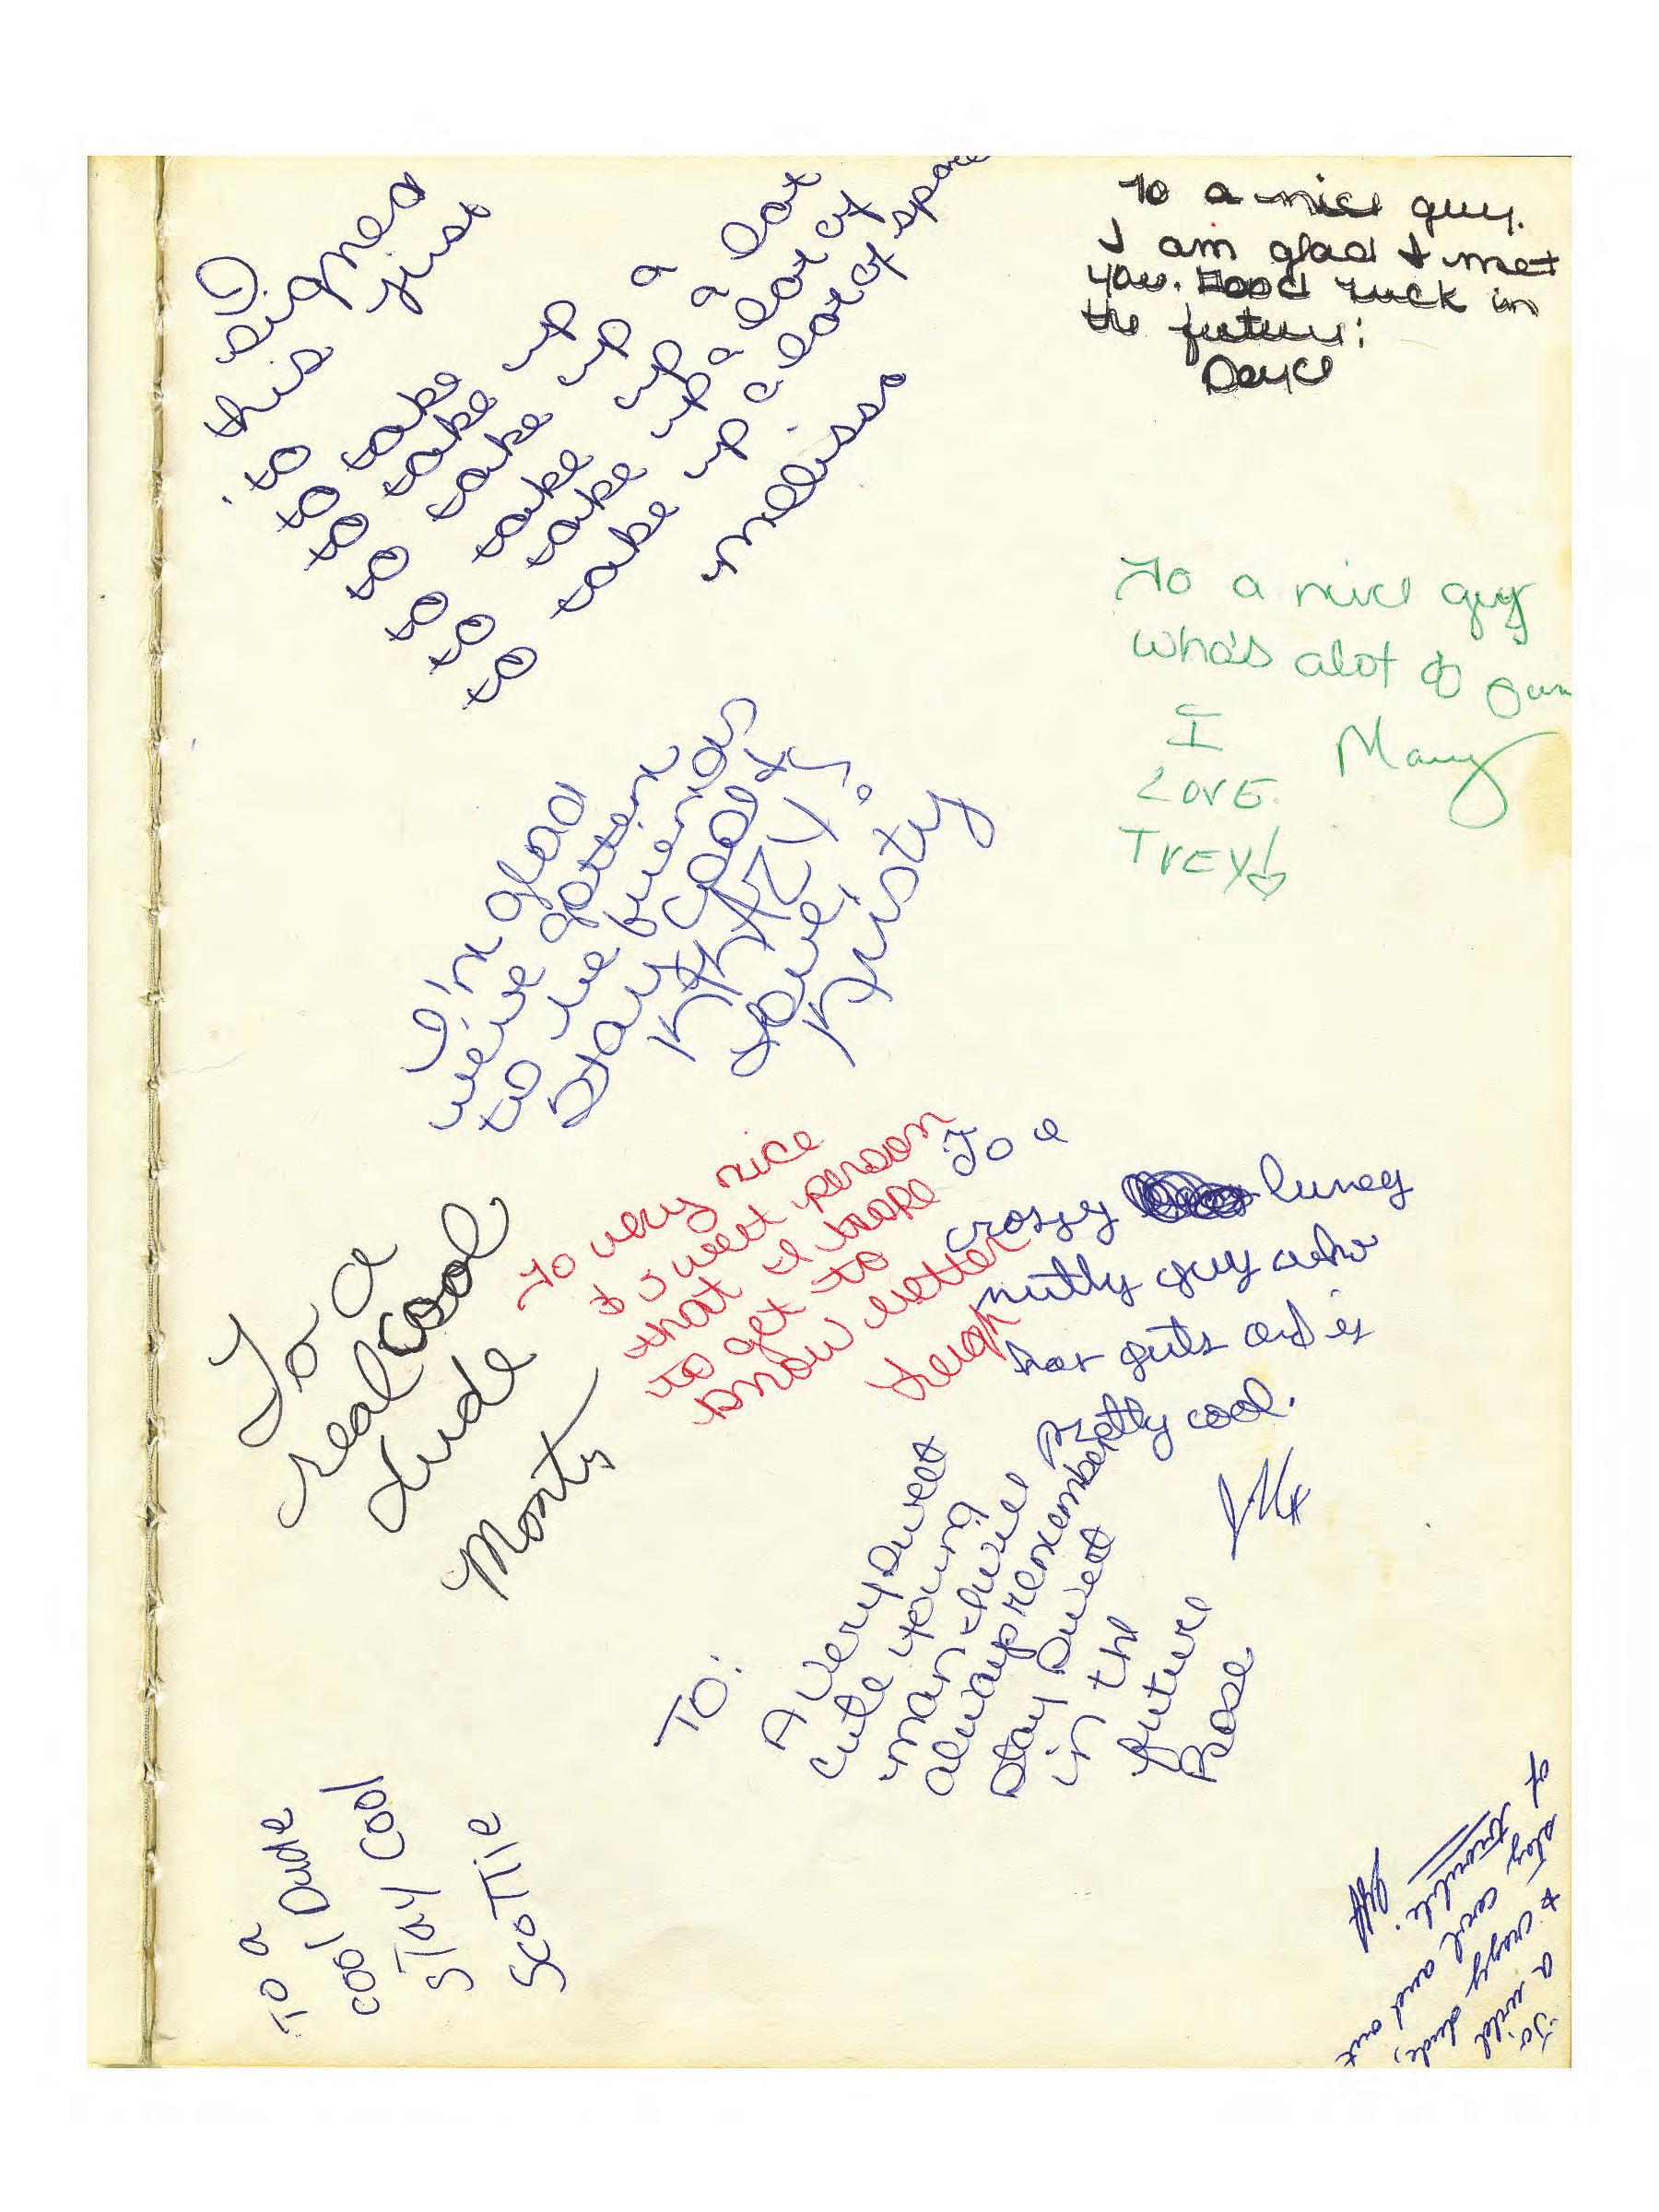 I signed
this just
to
to take
to take up
to take up a
to take up a lot
to take up a lot of
to take up a lot of space
Melissa
To a nice guy.
I am glad I met
you. Good luck in
the future:
To a nice guy
who's alot of
Mary
I
LOVE
TREY!
I'm glad
we've gotten
to be friends
Stay Cool &
KRAZY!
Love,
Kristy
To very nice
& sweet person
that I hope
to get to
know better
Leigh
To a
crazy luney
nutty guy who
has guts and is
pretty cool.
To a
real cool
dude
Monty
TO:
A very sweet
cute young
man I will
always remember
stay sweet
in the
future
Rose
To a
cool Dude
STAY Cool
ScoTTie
To a wild
& crazy dude,
stay cool and out
of trouble.
Jeff